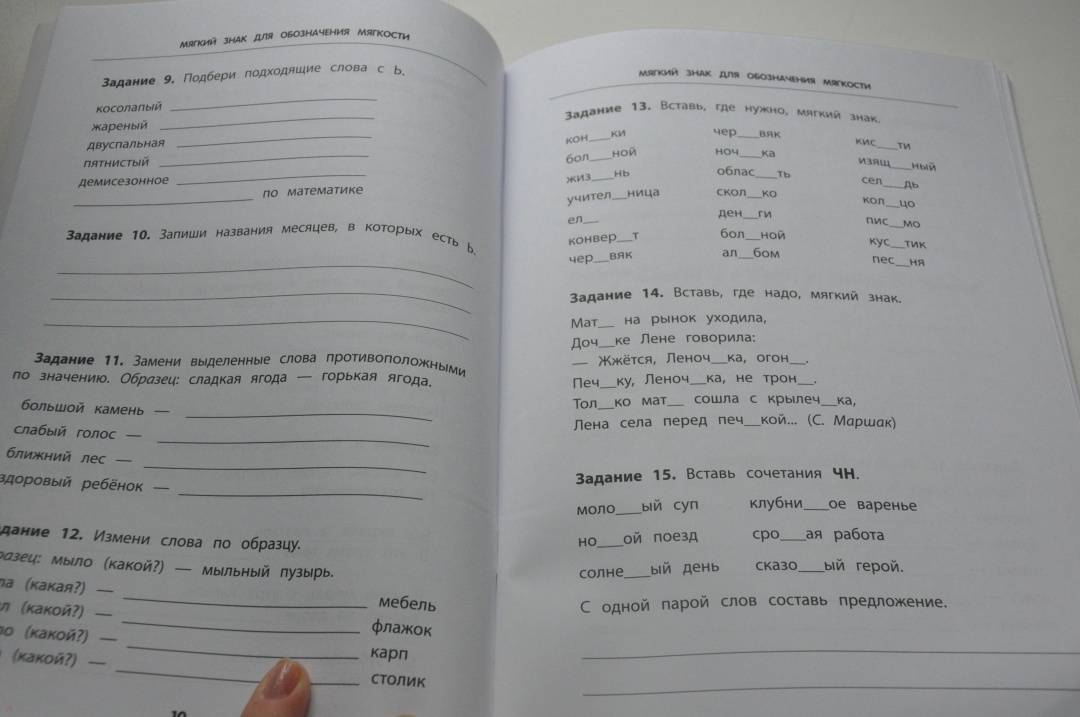 МЯГКИЙ ЗНАК ДЛЯ ОБОЗНАЧЕНИЯ МЯГКОСТИ
Задание 9. Подбери подходящие слова с Ь.
косолапый ____
жареный ____
двуспальная ____
пятнистый ____
демисезонное ____
____ по математике
Задание 10. Запиши названия месяцев, в которых есть Ь.
Задание 11. Замени выделенные слова противоположными
по значению. Образец: сладкая ягода — горькая ягода.
большой камень — ____
слабый голос — ____
ближний лес — ____
здоровый ребёнок — ____
дание 12. Измени слова по образцу.
разец: мыло (какой?) — мыльный пузырь.
ла (какая?) — ____ мебель
л (какой?) — ____ флажок
ло (какой?) — ____ карп
(какой?) — ____ столик
10
МЯГКИЙ ЗНАК ДЛЯ ОБОЗНАЧЕНИЯ МЯГКОСТИ
Задание 13. Вставь, где нужно, мягкий знак.
кон___ки чер___вяк кис___ти
бол___ной ноч___ка изящ___ный
жиз___нь облас___ть сел___дь
учител__ница скол__ко кол__цо
ел__ ден__ги пис__мо
конвер__т бол__ной кус__тик
чер__вяк ал__бом пес__ня
Задание 14. Вставь, где надо, мягкий знак.
Мат__ на рынок уходила,
Доч__ке Лене говорила:
— Жжётся, Леноч__ка, огон__.
Печ__ку, Леноч__ка, не трон__.
Тол__ко мат__ сошла с крылеч__ка,
Лена села перед печ__кой... (С. Маршак)
Задание 15. Вставь сочетания ЧН.
моло___ый суп клубни___ое варенье
но___ой поезд сро___ая работа
солне___ый день сказо___ый герой.
С одной парой слов составь предложение.